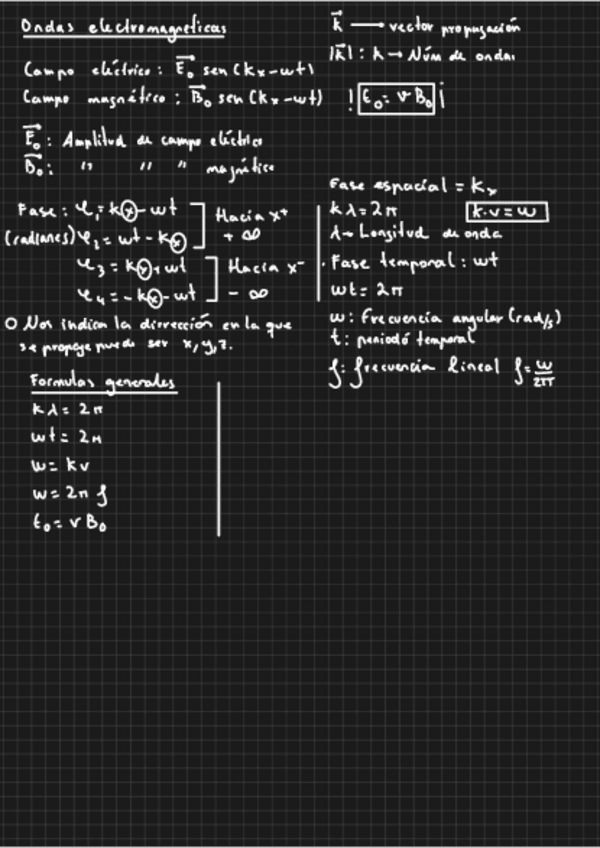 Ondas electromagneticas
Campo eléctrico : E⃗₀ sen (kx - wt)
Campo magnético : B⃗₀ sen (kx - wt)
E⃗₀ : Amplitud de campo eléctrico
B⃗₀ : " " " magnético
Fase : φ₁ = kⓧ - wt
(radianes) φ₂ = wt - kⓧ
Hacia x⁺
+ ∞
φ₃ = kⓧ + wt
φ₄ = - kⓧ - wt
Hacia x⁻
- ∞
O Nos indican la dirección en la que
se propaga puede ser x, y, z.
Formulas generales
kλ = 2π
wt = 2π
w = kv
w = 2π f
E₀ = v B₀
k⃗ → vector propagación
|k⃗| : k → Núm de ondas
! E₀ = v B₀ ¡
Fase espacial = kx
kλ = 2π
k·v = w
λ → Longitud de onda
· Fase temporal : wt
wt = 2π
w : Frecuencia angular (rad/s)
t : periodo temporal
f : frecuencia lineal f = w/2π